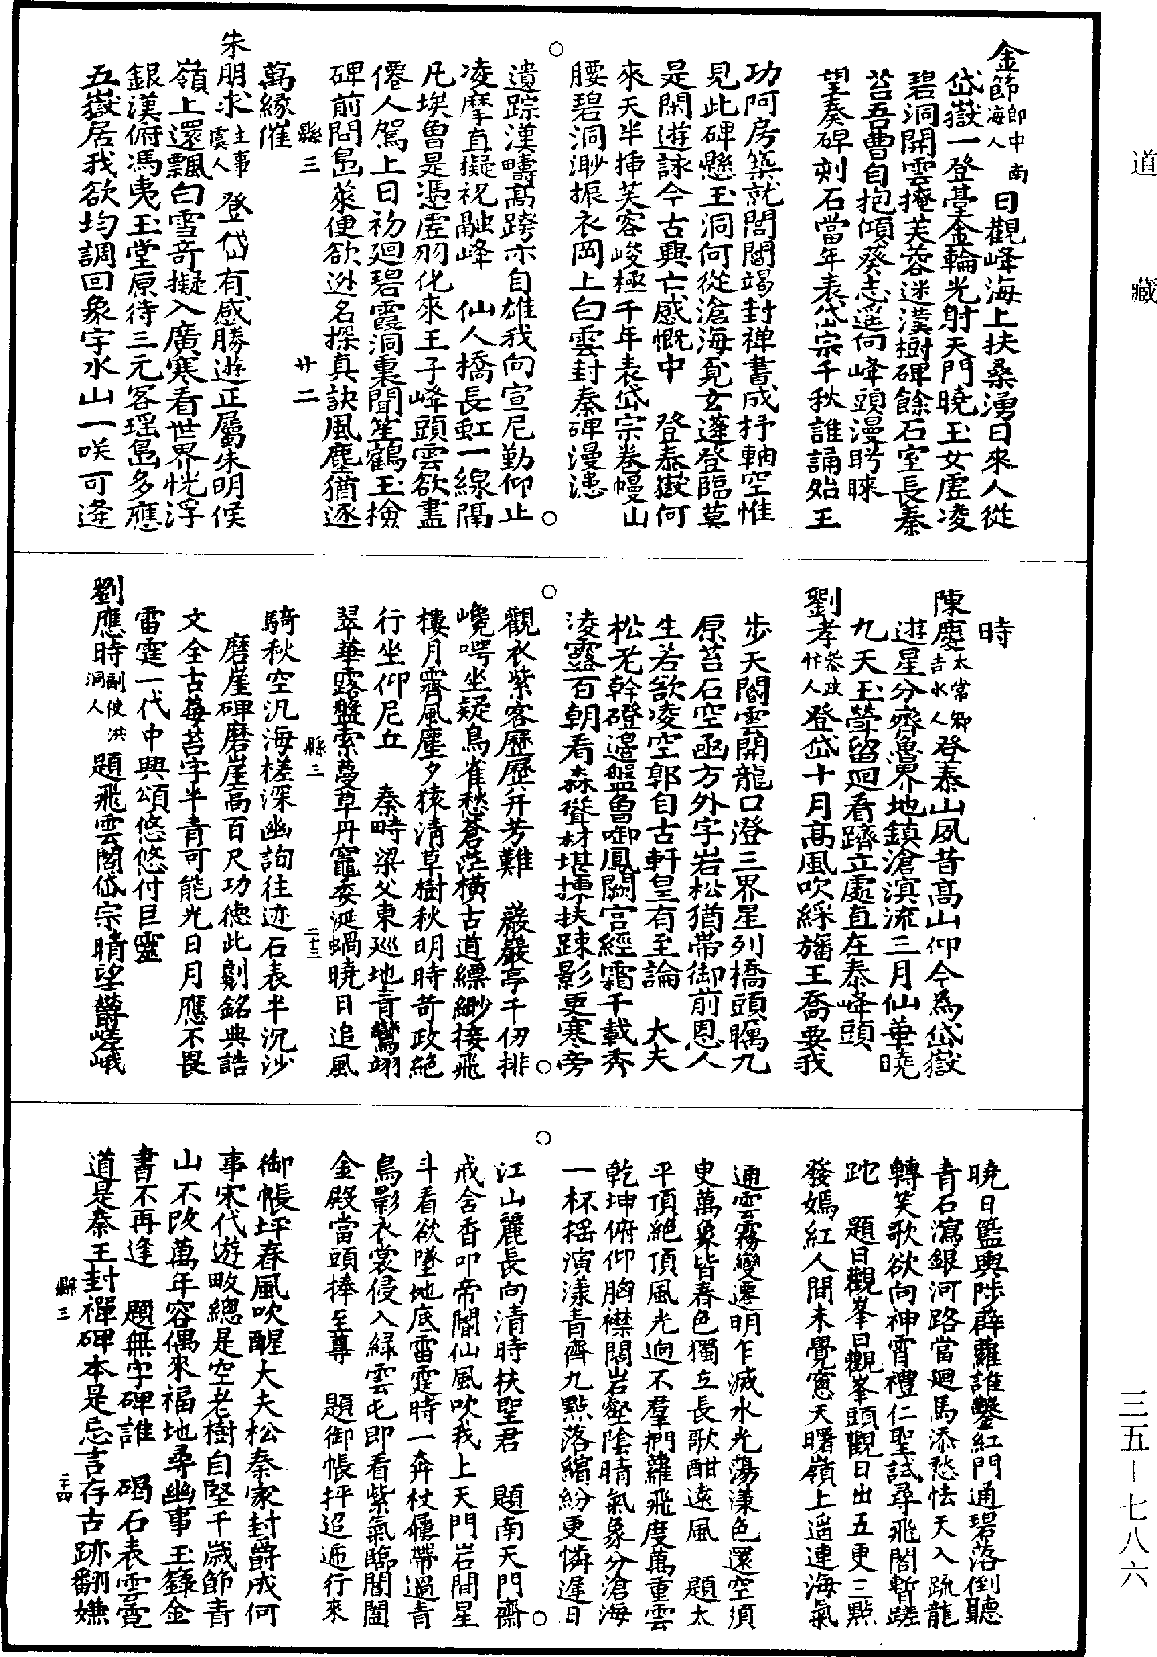 道藏
金節郎中南海人日觀峰海上扶桑湧日來人從
岱嶽一登臺金輪光射天門曉玉女虛凌
碧洞開雲掩芙蓉迷漢樹碑餘石室長秦
苔吾曹自抱傾葵志遥向峰頭漫聘睞
望秦碑刻石當年表岱宗千秋誰誦始王
功阿房築就閭閻竭封禅書成抒軸空惟
見此碑懸玉洞何從滄海覓玄蓬登臨莫
是閑遊詠今古興亡感慨中 登泰嶽何
來天半挿芙容峻極千年表岱宗卷幔山
腰碧洞渺振衣岡上白雲封秦碑漫漶
遺踪漢疇高跨亦自雄我向宣尼勤仰止
凌摩直擬祝融峰 仙人橋長虹一線隔
凡埃曾是憑虚羽化來王子峰頭雲欲盡
僊人駕上日初廻碧霞洞裏聞笙鶴玉撿
碑前問島萊便欲逃名探真訣風塵猶逐
縣三 廿二
萬緣催
朱朋求主事虞人登岱有感勝遊正屬朱明候
嶺上還飄白雪竒擬入廣寒看世界恍浮
銀漢俯馮夷玉堂原待三元客瑶島多應
五嶽居我欲均調回象宇水山一咲可逢
時
陳慶太常卿吉水人登泰山夙昔高山仰今為岱嶽
遊星分齊魯界地鎮滄溟流三月仙華曉
九天玉𦫵留迴看躋立處直在泰峰頭
劉孝叅政忻人登岱十月高風吹綵旛王喬要我
步天閽雲開龍口澄三界星列橋頭矚九
原苔石空函方外字岩松猶帶御前恩人
生若欲凌空郭自古軒皇有至論 大夫
松无幹磴邉盤魯啣鳳闕宫經霜千載秀
淩靈百朝看森聳材堪㨂扶踈影更寒旁
觀衣紫客歷歷弁芳難 巖巖亭千仞排
巉崿坐疑鳥雀愁蒼茫横古道縹緲接飛
樓月霽風塵夕猿清草樹秋明時苛政絶
行坐仰尼丘 秦時梁父東廵地青鸞翊
翠華露盤索蔓草丹竈委涎蝸曉日追風
縣三 二十三
騎秋空汎海槎深幽詢往迹石表半沉沙
磨崖碑磨崖高百尺功德此劖銘典誥
文全古莓苔字半青可能光日月應不畏
雷霆一代中興頌悠悠付巨靈
劉應時副使洪洞人題飛雲閣岱宗晴望欝嵯峨
曉日籃輿陟薜蘿誰鑿紅門通碧落倒聽
青石瀉銀河路當廻馬添愁怯天入䟽龍
轉笑歌欲向神霄禮仁聖試尋飛閣暫蹉
跎 題日觀峯日觀峯頭觀日出五更三㸃
發嫣紅人間未覺窻天曙嶺上遥連海氣
通雲霧變遷明乍滅水光蕩漾色還空須
臾萬象皆春色獨立長歌酣遠風 題太
平頂絶頂風光逈不羣捫蘿飛度萬重雲
乾坤俯仰胸襟闊岩壑陰晴氣象分滄海
一杯揺演漾青齊九㸃落繽紛更憐遲日
江山麗長向清時扶聖君 題南天門齋
戒含香叩帝閽仙風吹我上天門岩間星
斗看欲墜地底雷霆時一奔杖儷帶過青
鳥影衣裳侵入緑雲屯即看紫氣臨閶闔
金殿當頭捧至尊 題御帳坪迢逓行來
御帳坪春風吹醒大夫松秦家封爵成何
事宋代遊畋總是空老樹自堅千歳節青
山不改萬年容偶來福地尋幽事玉籙金
書不再逢 題無字碑誰 碣石表雲霓
道是秦王封禪碑本是忘言存古跡翻嫌
縣三 二十四
三五－七八六